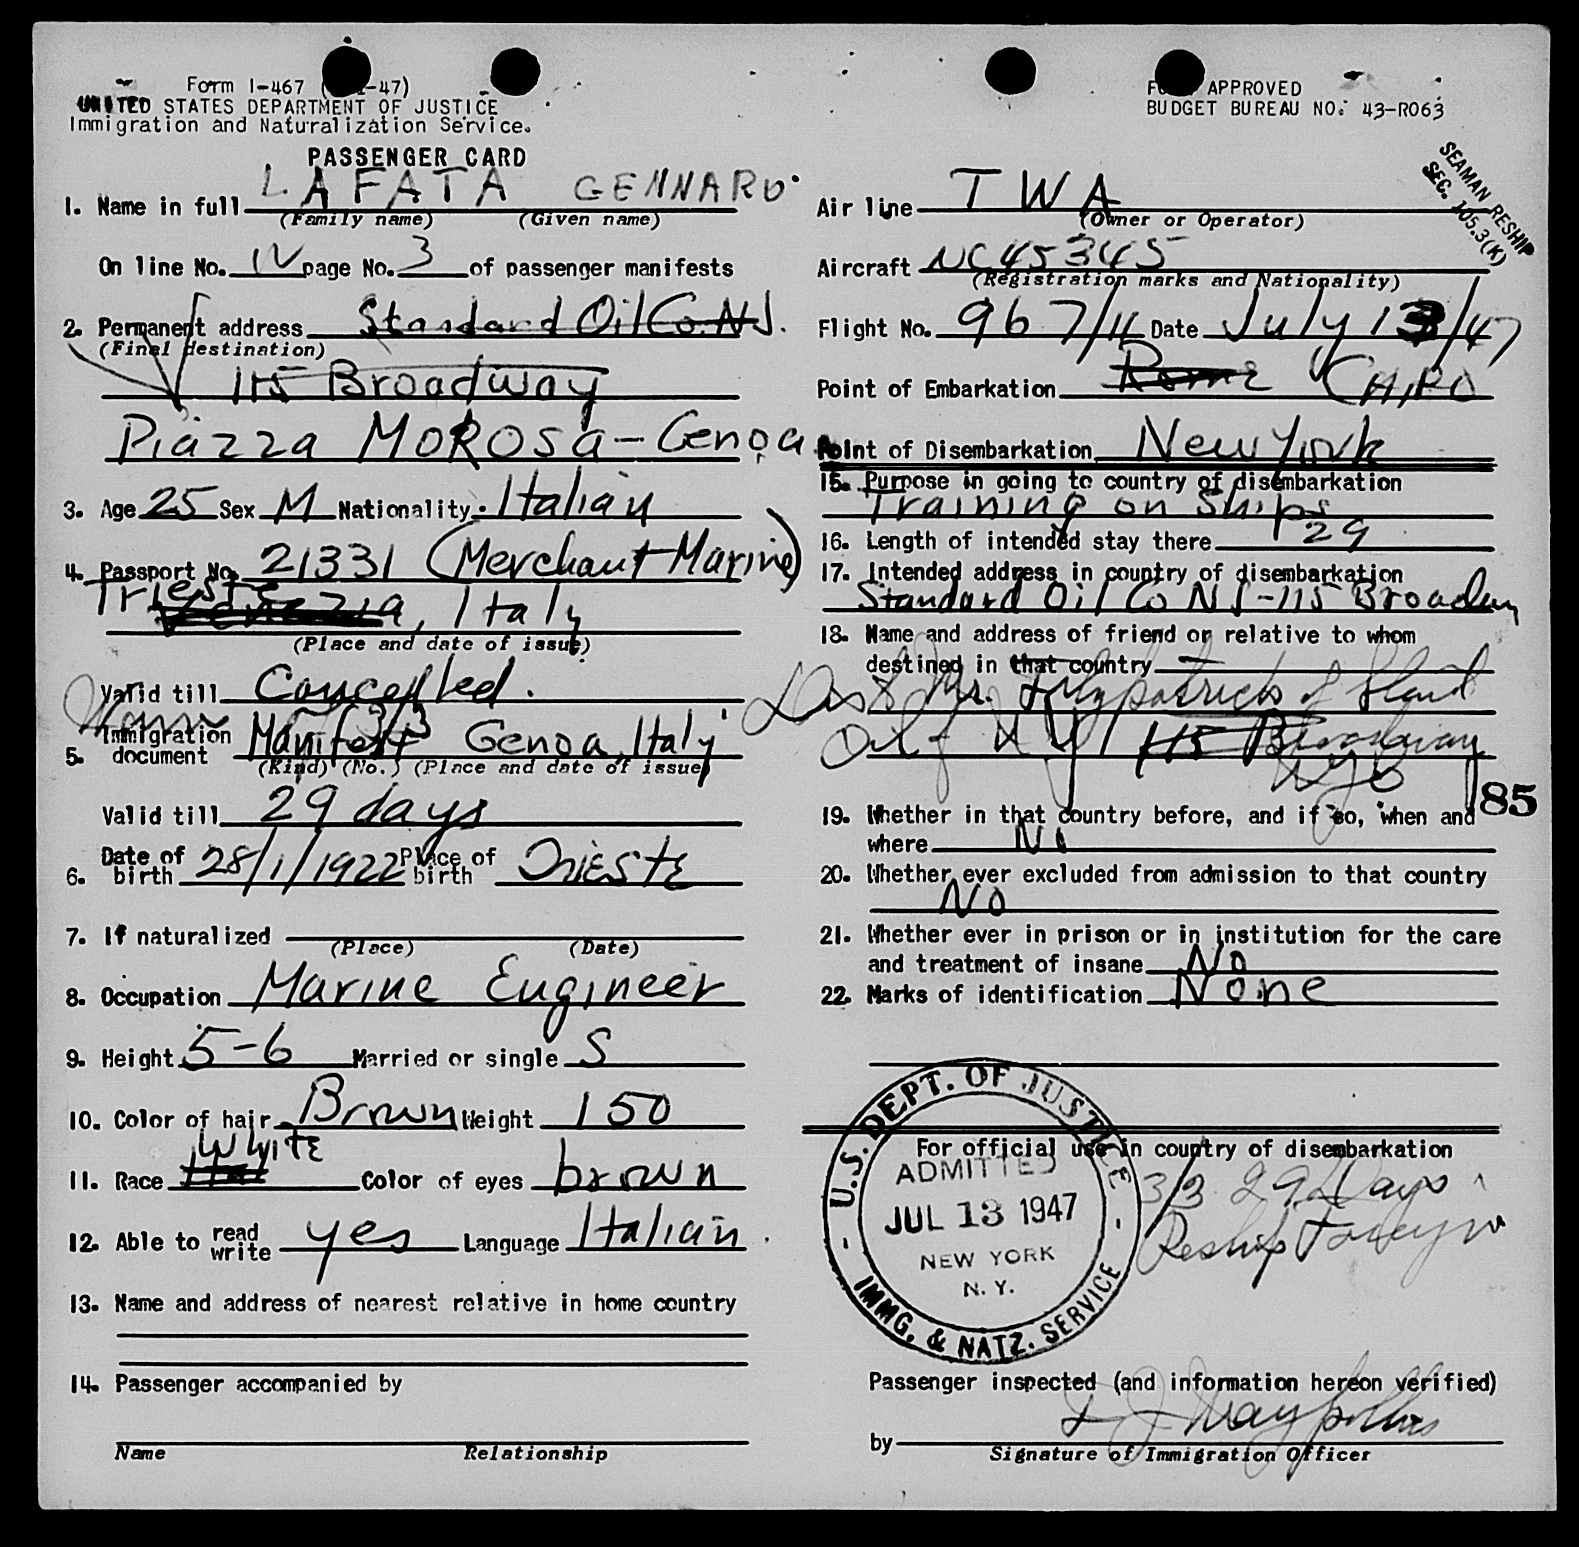 Form I-467 ( -47)
UNITED STATES DEPARTMENT OF JUSTICE
Immigration and Naturalization Service.
PASSENGER CARD
1. Name in full LAFATA GENNARO
(Family name) (Given name)
On line No. IV page No. 3 of passenger manifests
2. Permanent address Standard Oil Co. NJ.
(Final destination)
115 Broadway
Piazza MOROSa - Genoa
3. Age 25 Sex M Nationality Italian
4. Passport No. 21331 (Merchant Marine)
Trieste Venezia, Italy
(Place and date of issue)
Valid till Cancelled.
3/3
5. Immigration document Manifest Genoa, Italy
(Kind) (No.) (Place and date of issue)
Valid till 29 days
6. Date of birth 28/1/1922 Place of birth TriEStE
7. If naturalized
(Place) (Date)
8. Occupation Marine Engineer
9. Height 5-6 Married or single S
10. Color of hair Brown Weight 150
11. Race WhitE Color of eyes brown
12. Able to read write yes Language Italian
13. Name and address of nearest relative in home country
14. Passenger accompanied by
Name Relationship
FORM APPROVED
BUDGET BUREAU NO. 43-R063
SEAMAN RESHIP
SEC. 105.3(K)
Air line TWA
(Owner or Operator)
Aircraft NC45345
(Registration marks and Nationality)
Flight No. 967/11 Date July 13/47
Point of Embarkation Rome CAIRO
Point of Disembarkation New York
15. Purpose in going to country of disembarkation
Training on Ships
16. Length of intended stay there 29
17. Intended address in country of disembarkation
Standard Oil Co NJ - 115 Broadway
18. Name and address of friend or relative to whom
destined in that country
Mr. Fitzpatrick of Stand
Oil of NJ 115 Broadway
NYC
85
19. Whether in that country before, and if so, when and
where No
20. Whether ever excluded from admission to that country
No
21. Whether ever in prison or in institution for the care
and treatment of insane No
22. Marks of identification None
For official use in country of disembarkation
U.S. DEPT. OF JUSTICE
ADMITTED
JUL 13 1947
NEW YORK
N. Y.
IMMG. & NATZ. SERVICE
3/3 29 Days
Reship Foreign
Passenger inspected (and information hereon verified)
by
Signature of Immigration Officer